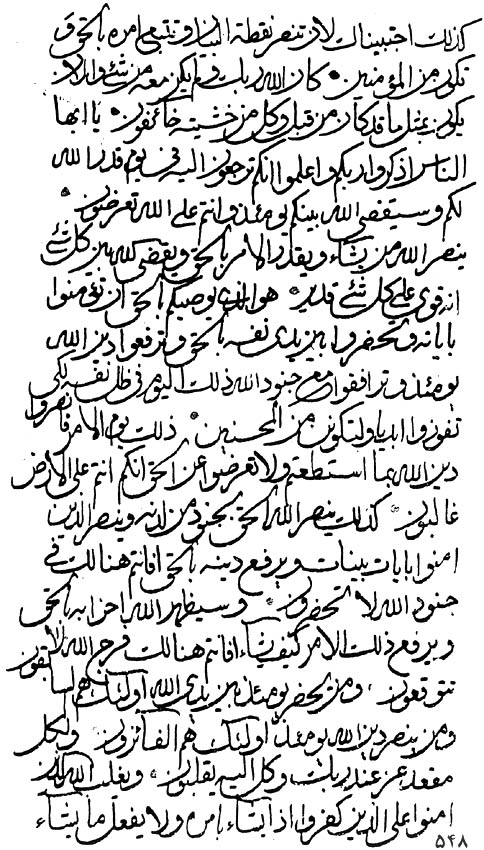 كذلك اجتبيناك لان تنصر نقطة البيان و تتبعن امره بالحق و
تكونن من المؤمنين كان الله ربك و لم يكن معه من شئ و الان
يكون بمثل ما قد كان من قبل و كل من خشيته خائفون يا ايها
الناس اذكروا ربكم و اعلموا انكم ترجعون اليه في يوم قدر الله
لكم و سيقضى الله بينكم يومئذ و انتم على الله تعرضون
ينصر الله من يشاء و يقدر الامر بالحق و يقضى الله بين كل شئ
انه قوى على كل شئ قدير هو الذى يوصيكم بالحق ان تؤمنوا
باياته و تحضروا بين يدى نفسه بالحق و ترفعوا دين الله
يومئذ و ترافقوا مع جنود الله ذلك اليوم في ظل نفسه لكى
تفوزوا ابديا و لتكونن من المحسنين ذلك يوم الامر فانصروا
دين الله بما استطعتم و لا تعرضوا عن الحق انكم انتم على الارض
غالبون كذلك ينصر الله الحق بجنود من لدنه و ينصر الذين
امنوا بايات بينات و يرفع دينه بالحق افانتم هنالك في
جنود الله لا تحضرون و سيظهر الله احزابه بالحق
و يرفع ذلك الامر كيف يشاء افانتم هنالك فرج الله لا
تتوقعون و من يحضر يومئذ بين يدى الله اولئك هم السابقون
و من ينصر دين الله يومئذ اولئك هم الفائزون و لكل
مقعد عز عند ربك و كل اليه يقلبون و يغلب الله الذين
امنوا على الذين كفروا اذا يشاء بامره و لا يفعل ما يشاء
۵۴۸